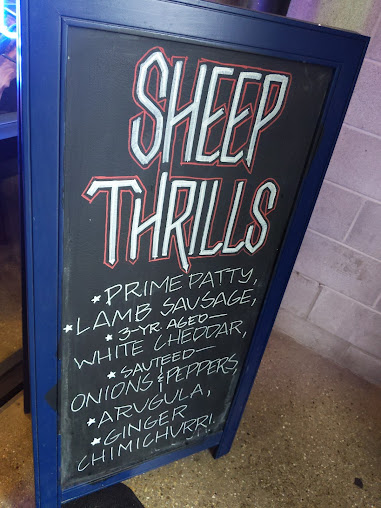 SHEEP
THRILLS
★PRIME PATTY,
★LAMB SAUSAGE,
★3-YR. AGED—
WHITE CHEDDAR,
★SAUTEED—
ONIONS & PEPPERS,
★ARUGULA,
★GINGER
CHIMICHURRI